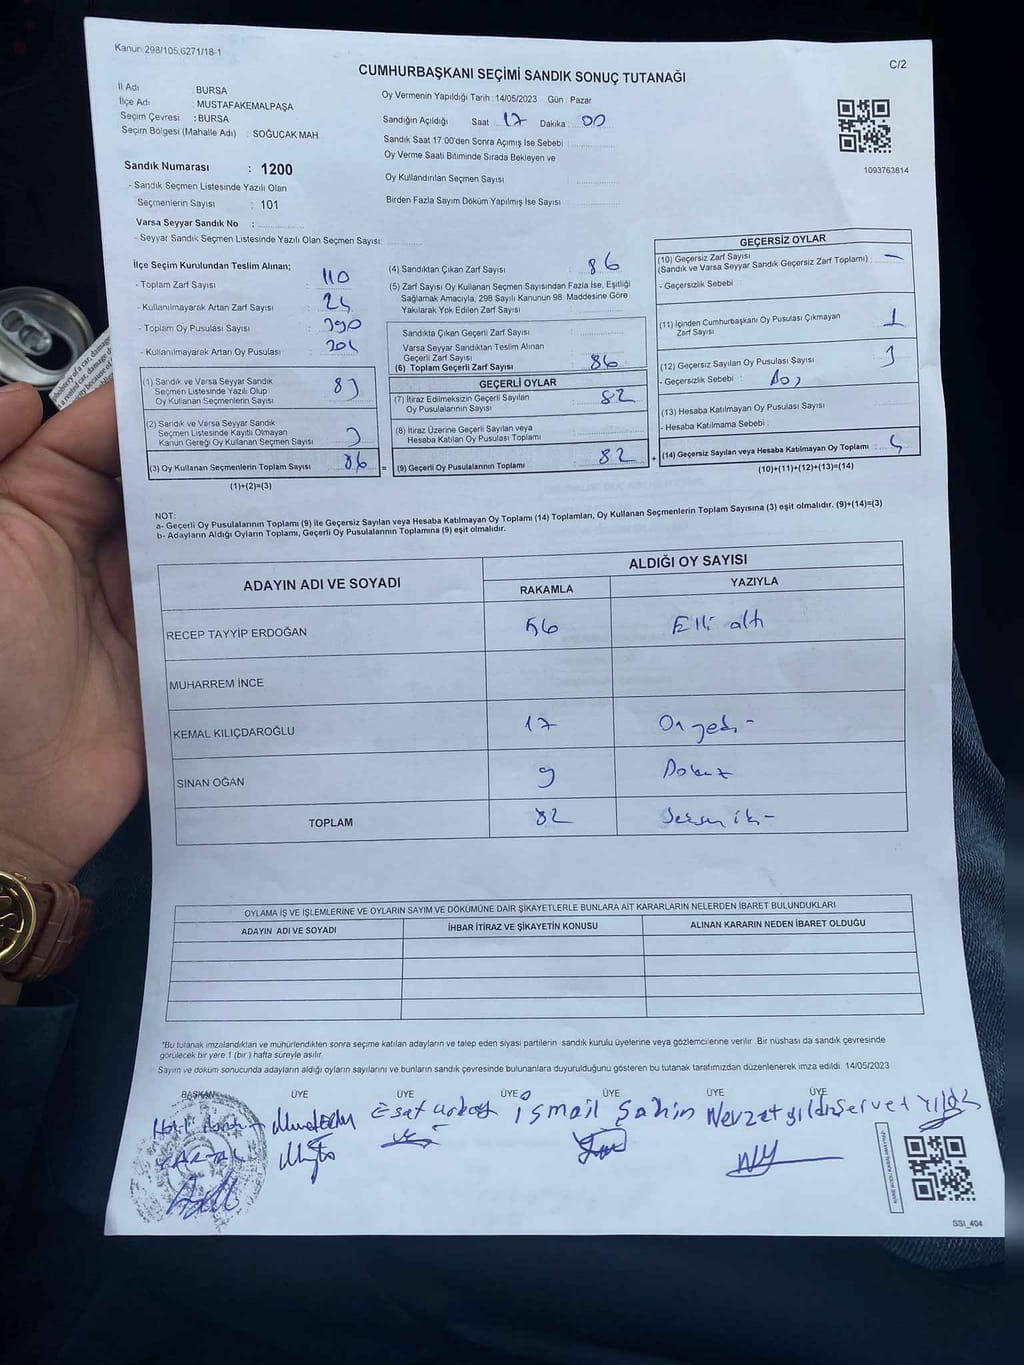 Kanun 298/105,6271/18-1
C/2
CUMHURBAŞKANI SEÇİMİ SANDIK SONUÇ TUTANAĞI
İl Adı : BURSA
İlçe Adı : MUSTAFAKEMALPAŞA
Seçim Çevresi : BURSA
Seçim Bölgesi (Mahalle Adı) : SOĞUCAK MAH
Sandık Numarası : 1200
- Sandık Seçmen Listesinde Yazılı Olan
Seçmenlerin Sayısı : 101
Varsa Seyyar Sandık No :
- Seyyar Sandık Seçmen Listesinde Yazılı Olan Seçmen Sayısı:
Oy Vermenin Yapıldığı Tarih : 14/05/2023 Gün : Pazar
Sandığın Açıldığı Saat 17 Dakika : 00
Sandık Saat 17.00'den Sonra Açımış İse Sebebi :
Oy Verme Saati Bitiminde Sırada Bekleyen ve
Oy Kullandırılan Seçmen Sayısı :
Birden Fazla Sayım Döküm Yapılmış İse Sayısı :
1093763814
İlçe Seçim Kurulundan Teslim Alınan;
- Toplam Zarf Sayısı : 110
- Kullanılmayarak Artan Zarf Sayısı : 24
- Toplam Oy Pusulası Sayısı :
- Kullanılmayarak Artan Oy Pusulası :
(1) Sandık ve Varsa Seyyar Sandık
Seçmen Listesinde Yazılı Olup
Oy Kullanan Seçmenlerin Sayısı : 83
(2) Sandık ve Varsa Seyyar Sandık
Seçmen Listesinde Kayıtlı Olmayan
Kanun Gereği Oy Kullanan Seçmen Sayısı : 3
(3) Oy Kullanan Seçmenlerin Toplam Sayısı : 86 =
(1)+(2)=(3)
(4) Sandıktan Çıkan Zarf Sayısı : 86
(5) Zarf Sayısı Oy Kullanan Seçmen Sayısından Fazla İse, Eşitliği
Sağlamak Amacıyla, 298 Sayılı Kanunun 98. Maddesine Göre
Yakılarak Yok Edilen Zarf Sayısı :
Sandıkta Çıkan Geçerli Zarf Sayısı :
Varsa Seyyar Sandıktan Teslim Alınan
Geçerli Zarf Sayısı :
(6) Toplam Geçerli Zarf Sayısı : 86
GEÇERLİ OYLAR
(7) İtiraz Edilmeksizin Geçerli Sayılan
Oy Pusulalarının Sayısı : 82
(8) İtiraz Üzerine Geçerli Sayılan veya
Hesaba Katılan Oy Pusulası Toplamı :
(9) Geçerli Oy Pusulalarının Toplamı : 82 +
GEÇERSİZ OYLAR
(10) Geçersiz Zarf Sayısı
(Sandık ve Varsa Seyyar Sandık Geçersiz Zarf Toplamı) : —
- Geçersizlik Sebebi
(11) İçinden Cumhurbaşkanı Oy Pusulası Çıkmayan
Zarf Sayısı : 1
(12) Geçersiz Sayılan Oy Pusulası Sayısı : 3
- Geçersizlik Sebebi :
(13) Hesaba Katılmayan Oy Pusulası Sayısı :
- Hesaba Katılmama Sebebi :
(14) Geçersiz Sayılan veya Hesaba Katılmayan Oy Toplamı :
(10)+(11)+(12)+(13)=(14)
NOT:
a- Geçerli Oy Pusulalarının Toplamı (9) ile Geçersiz Sayılan veya Hesaba Katılmayan Oy Toplamı (14) Toplamları, Oy Kullanan Seçmenlerin Toplam Sayısına (3) eşit olmalıdır. (9)+(14)=(3)
b- Adayların Aldığı Oyların Toplamı, Geçerli Oy Pusulalarının Toplamına (9) eşit olmalıdır.
ADAYIN ADI VE SOYADI
ALDIĞI OY SAYISI
RAKAMLA
YAZIYLA
RECEP TAYYİP ERDOĞAN 56 Elli altı
MUHARREM İNCE
KEMAL KILIÇDAROĞLU 17 On yedi -
SİNAN OĞAN 9 Dokuz
TOPLAM 82 Seksen iki -
OYLAMA İŞ VE İŞLEMLERİNE VE OYLARIN SAYIM VE DÖKÜMÜNE DAİR ŞİKAYETLERLE BUNLARA AİT KARARLARIN NELERDEN İBARET BULUNDUKLARI
ADAYIN ADI VE SOYADI
İHBAR İTİRAZ VE ŞİKAYETİN KONUSU
ALINAN KARARIN NEDEN İBARET OLDUĞU
*Bu tutanak imzalandıktan ve mühürlendikten sonra seçime katılan adayların ve talep eden siyasi partilerin sandık kurulu üyelerine veya gözlemcilerine verilir. Bir nüshası da sandık çevresinde
görülecek bir yere 1 (bir ) hafta süreyle asılır.
Sayım ve döküm sonucunda adayların aldığı oyların sayılarını ve bunların sandık çevresinde bulunanlara duyurulduğunu gösteren bu tutanak tarafımızdan düzenlenerek imza edildi. 14/05/2023
BAŞKAN ÜYE ÜYE ÜYE ÜYE ÜYE ÜYE
KARTAL
Esat
İsmail Şahin
Nevzat Yıldız
Servet Yıldız
SSI_404